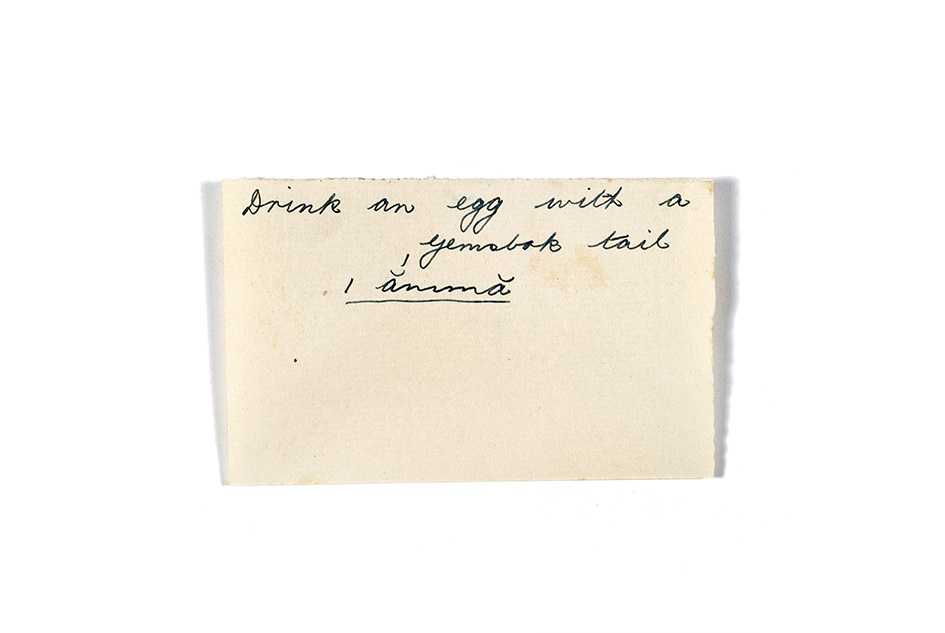 Drink an egg with a
Gemsbok tail
| ӑnmmӑ